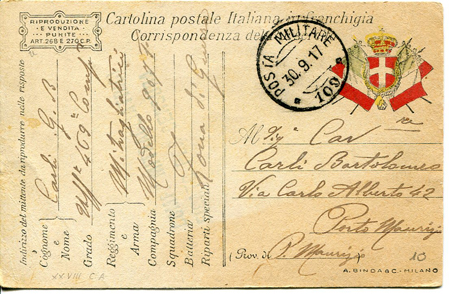 RIPRODUZIONE
E VENDITA
PUNITE
ART. 268 E 270 C.P.
Cartolina postale Italiana in franchigia
Corrispondenza del
POSTA MILITARE
30.9.17
109
Indirizzo del mittente da riprodurre nelle risposte
Cognome e Nome Carli G. B.
Grado Uff.le 469 Comp.
Reggimento e Arma Mitragliatrici
Compagnia Modello 907
Squadrone
Batteria
Riparti speciali Zona di Guerra
Al Sig. Cav.
Carli Bartolomeo
Via Carlo Alberto 42
Porto Maurizio
(Prov. di P. Maurizio
10
A. BINDA & C. - MILANO
XXVIII C A